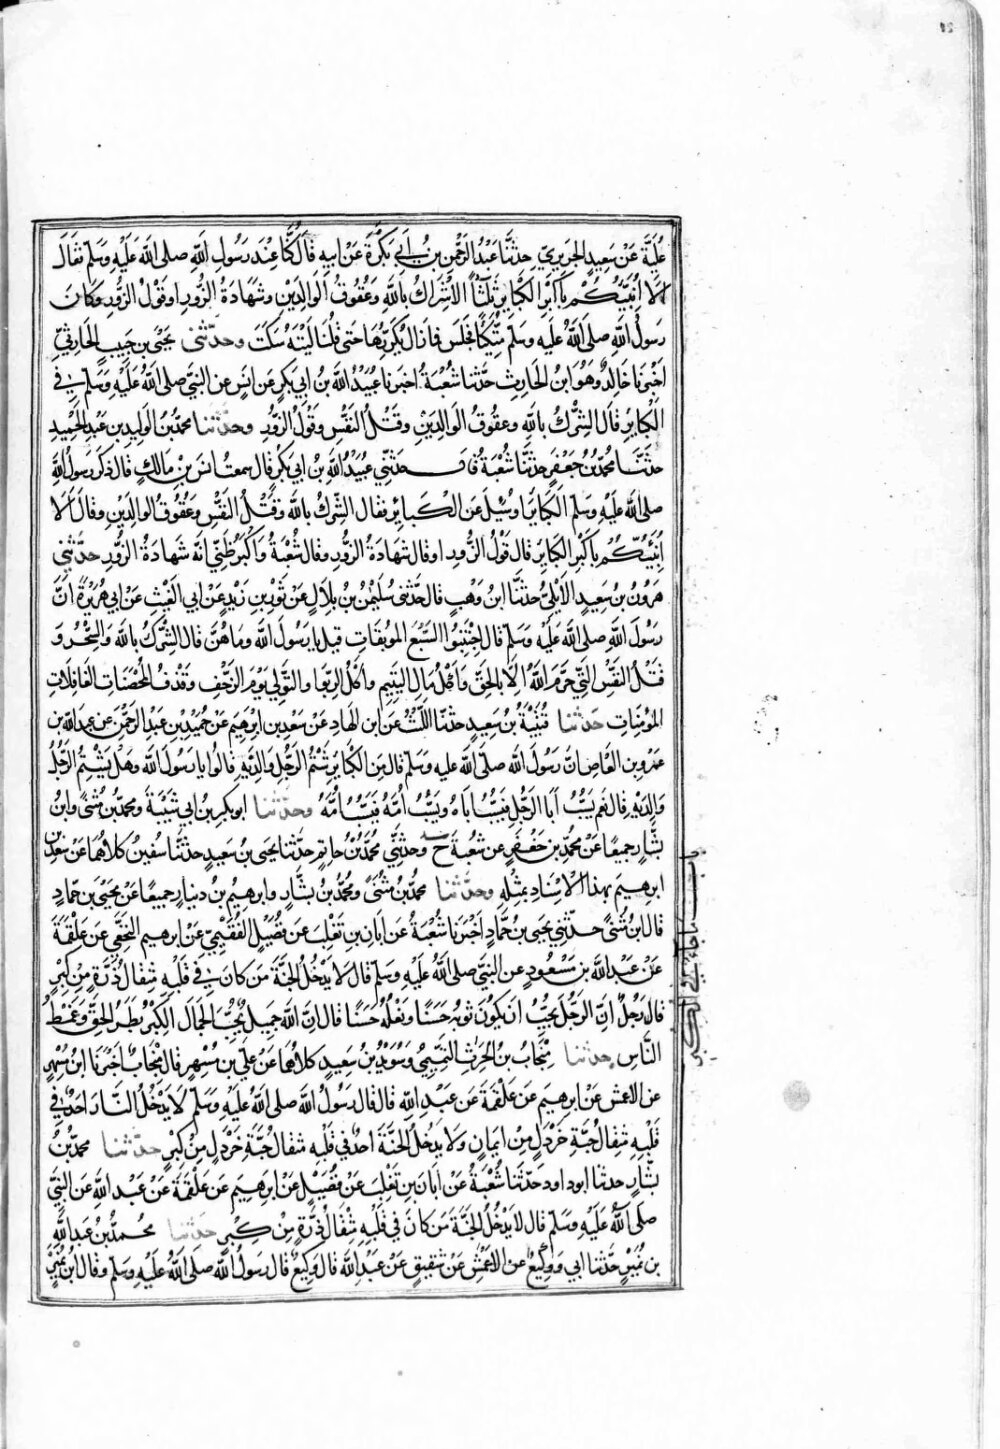 عُلَيَّةَ عَنْ سَعِيدٍ الجُرَيرِيّ حدثنا عَبْدُ الرَّحْمٰنِ بنُ اَبي بَكْرَةَ عَنْ ابيهِ قالَ كُنَّا عِنْدَ رَسُولِ اللهِ صلى الله عَلَيْهِ وسَلّم فقالَ
اَلا اُنَبِّئُكُمْ بِاَكْبَرِ الكَبَايِرِ ثَلثًا الاِشْرَاكُ بِاللهِ وَعُقُوقُ الوَالِدَيْنِ وشَهَادَةُ الزُّورِ اوقَوْلُ الزُّورِ وكانَ
رَسُولُ اللهِ صلى اللهُ عَلَيْهِ وسَلّم مُتَّكِئًا فجَلَسَ فما زالَ يُكَرِّرُهَا حتى قُلنَا لَيْتَهُ سَكَتَ وحدّثنى يحيى بن حَبِيبٍ الحَارِثِيّ
اَخْبَرَنا خالِدٌ وهُوَ ابنُ الحَارِثِ حدّثنا شُعْبَةُ اخبَرنا عُبَيْدُ اللهِ بنُ ابي بَكرٍ عَن انَسٍ عَن النبيّ صلى اللهُ عَلَيْهِ وسَلّم في
الكَبَايِرِ قالَ الشِّرْكُ بِاللهِ وعقُوقُ الوَالِدَيْنِ وقتْلُ النَّفْسِ وقَوْلُ الزُّورِ وحدّثنا محمدُ بنُ الوَلِيدِ بنِ عَبْدِ الحَمِيدِ
حدثنا محمدُ بنُ جَعْفَرٍ حدثنا شُعْبَةُ قالَ حَدَثنِي عُبَيْدُ اللهِ بنُ ابي بَكرٍ قالَ سمعتُ انسَ بنَ مَالِكٍ قالَ ذكَرَ رَسُولُ اللهِ
صلى اللهُ عَلَيْهِ وسَلّم الكَبَايِرَ اوسُئِلَ عَنِ الكَبائِرِ فقال الشِّرْكُ بِاللهِ وقَتْلُ النَّفْسِ وعُقُوقُ الوالِدَيْنِ وقالَ اَلا
اُنَبِّئُكُمْ بِاَكْبَرِ الكَبَايِرِ قالَ قَوْلُ الزُّورِ اوقال شَهَادَةُ الزُّورِ وقال شُعْبَةُ وَاَكْبَرُ ظَنِّي انّه شَهَادَةُ الزُّورِ حدّثني
هٰرُونُ بن سَعِيدٍ الاَيْلِيُّ حدثنا ابنُ وَهْبٍ قالَ حَدّثنى سُلَيْمٰنُ بنُ بِلَالٍ عَنْ ثَوْرِ بنِ زَيْدٍ عَنْ ابي الغَيْثِ عَنْ ابي هُرَيْرَةَ انَّ
رسُولَ اللهِ صلى الله عَلَيْه وسَلّم قالَ اجْتَنِبُوا السَّبْعَ المُوبقَاتِ قيلَ يا رَسُولَ الله ومَا هُنَّ قال الشِّرْكُ باللهِ والسِّحْرُ وَ
قَتْلُ النَّفْسِ الّتي حَرَّمَ اللهُ الّا بالحقِّ وَاَكْلُ مَالِ اليَتِيمِ وَاَكْلُ الرِّبَا والتَّوَلّي يَوْمَ الزَّحْفِ وقَذفُ المُحْصَنَاتِ الغَافِلَاتِ
المُؤمِنَاتِ حَدّثنا قُتَيْبَةُ بنُ سَعِيدٍ حدثنا اللَّيْثُ عَن ابنِ الهَادِ عَنْ سَعْدِ بنِ ابرهِيمَ عَنْ حُمَيْدِ بنِ عَبدِ الرَّحْمٰنِ عَن عبدِ اللهِ بنِ
عَمْرِو بنِ العَاصِ انَّ رَسُولَ اللهِ صلى الله عليه وسَلّم قال مِن الكَبَايِرِ شَتْمُ الرَّجُلِ وَالِدَيْهِ قالُوا يا رَسُولَ اللهِ وهَلْ يَشْتِمُ الرَّجُلُ
وَالِدَيْهِ قالَ نَعَم يَسُبُّ اَبَا الرَّجُلِ فيَسُبُّ اَبَاهُ ويَسُبُّ اُمَّهُ فيَسُبُّ اُمَّهُ وحدّثنا ابوبكرِ بنُ ابي شَيْبَةَ ومحمدُ بنُ مُثنًّى وابنُ
بَشَّارٍ جميعًا عَنْ محمدِ بن جَعْفَرٍ عن شعْبَةَ ح وحدثني محمدُ بنُ حاتِمٍ حدّثنا يحيى بنُ سَعِيدٍ حدّثنا سُفيٰنُ كلاهُمَا عَنْ سَعْدِ بنِ
ابرهِيمَ بهذا الاِسْنَادِ بمثْلِهِ وحَدّثنا محمدُ بنُ مُثنّى ومحمدُ بنُ بشَّارٍ وابرهِيمُ بنُ دِينارٍ جميعًا عَنْ يحيَى بنِ حَمادٍ
قالَ ابنُ مُثَنًّى حدّثني يحيى بنُ حَمَّادٍ اَخْبَرَنا شُعْبَةُ عَن اَبانَ بنِ تَغْلِبَ عَن فُضَيْلٍ الفُقَيْمِيّ عَن ابرهيم النخَعِيِّ عَن عَلْقَمَةَ
عَنْ عَبْدِ اللهِ بنِ مَسْعُودٍ عن النبيّ صلى اللهُ عَلَيْهِ وسَلّم قالَ لا يَدْخُلُ الجَنَّةَ مَن كانَ في قَلْبِهِ مِثقَالُ ذَرَّةٍ مِن كِبْرٍ
قال رَجُلٌ اِنَّ الرَّجُلَ يُحِبُّ اَن يكُونَ ثوبُهُ حَسَنًا ونَعْلُهُ حَسَنًا قالَ انَّ الله جَمِيلٌ يُحِبُّ الجَمَالَ الكِبْرُ بَطَرُ الحَقِّ وغَمْطُ
النَّاسِ حدثنا مِنْجَابُ بنُ الحٰرِثِ التّمِيمِيُّ وسُوَيْدُ بنُ سَعِيدٍ كلاهُمَا عَنْ عَلِيّ بنِ مُسْهِرٍ قالَ مِنْجَابٌ اَخبَرَنا ابنُ مُسْهِرٍ
عن الاعمش عَنْ ابرهيم عَن عَلْقَمَةَ عَن عَبْدِ اللهِ قالَ قالَ رَسُولُ اللهِ صلى اللهُ عَلَيْهِ وسَلّم لا يَدْخُلُ النَّارَ اَحَدٌ في
قَلْبِهِ مِثْقَالُ حَبَّةِ خَرْدَلٍ مِن ايمَانٍ وَلَا يدخُلُ الجَنَّةَ احَدٌ في قَلْبِهِ مثقالُ حَبَّةِ خَرْدَلٍ مِن كِبْرٍ حدّثنا محمدُ بنُ
بَشَّارٍ حدثنا ابوداود حَدّثنا شُعْبَةُ عَنْ اَبَانَ بنِ تَغْلِبَ عَن فُضَيْلٍ عَنْ ابرهِيمَ عَن عَلْقَمَةَ عَنْ عَبْدِ اللهِ عَن النَّبيِّ
صلّى اللهُ عَلَيْهِ وسَلّم قالَ لا يَدْخُلُ الجَنَّةَ مَن كانَ في قَلْبِهِ مِثْقَالُ ذَرَّةٍ مِنْ كِبْرٍ حَدّثنا محمدُ بنُ عَبدِ اللهِ
بنِ نُمَيْرٍ حَدّثنا ابي ووَكِيعٌ عن الاعْمَشِ عَنْ شقِيقٍ عَنْ عَبْدِ اللهِ قالَ وكِيعٌ قالَ رَسُولُ اللهِ صلى اللهُ عَلَيْهِ وسَلّم وقال ابنُ نُمَيْرٍ
باب ما جاء في الكبر